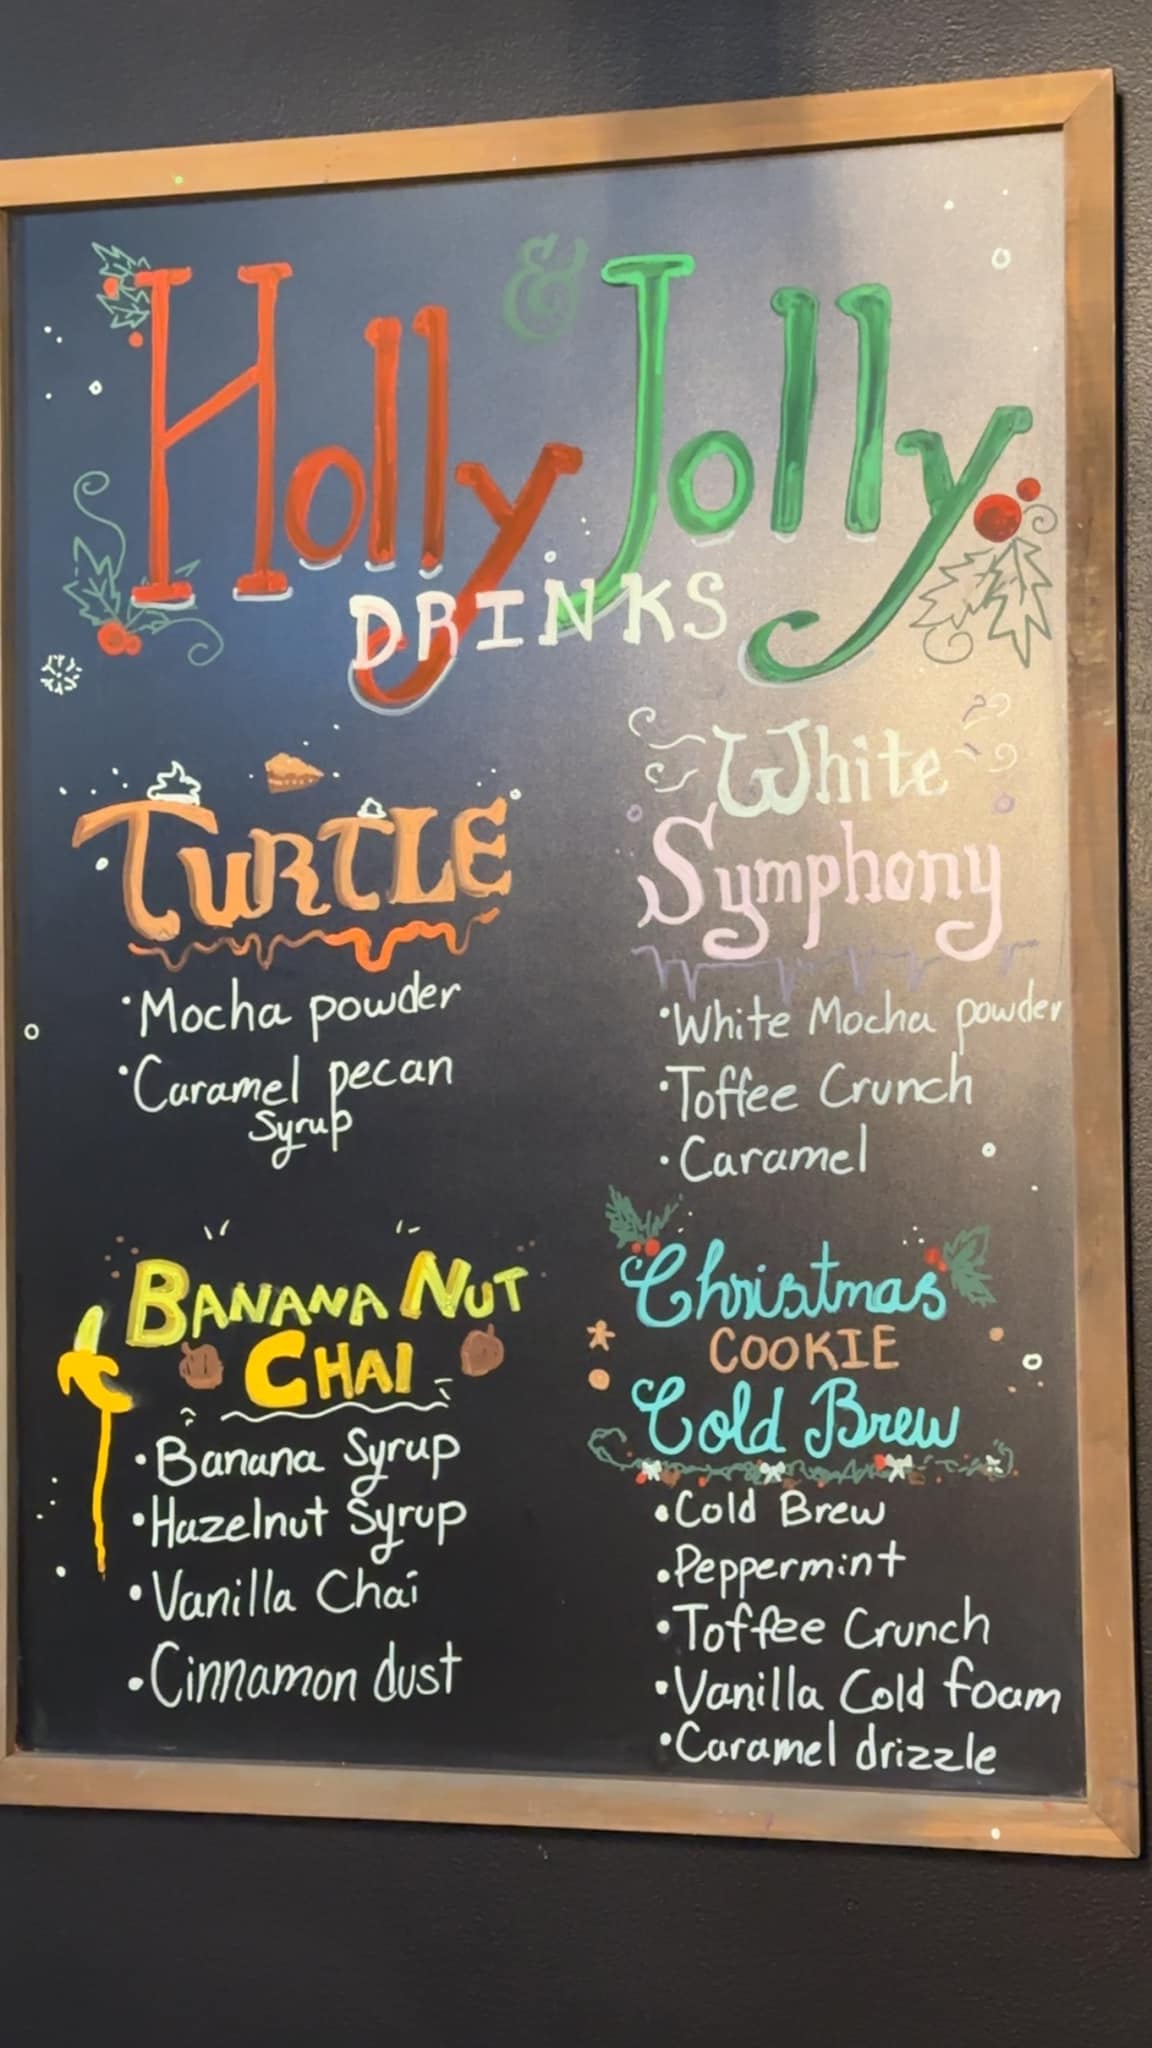 Holly & Jolly
DRINKS
TURTLE
• Mocha powder
• Caramel pecan
Syrup
White
Symphony
• White Mocha powder
• Toffee Crunch
• Caramel
BANANA NUT
CHAI
• Banana Syrup
• Hazelnut Syrup
• Vanilla Chai
• Cinnamon dust
Christmas
COOKIE
Cold Brew
• Cold Brew
• Peppermint
• Toffee Crunch
• Vanilla Cold foam
• Caramel drizzle